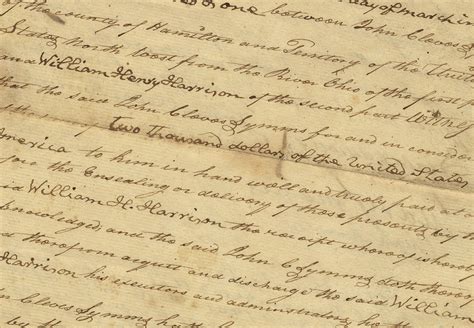 one between John Cleves
day of march in
of the county of Hamilton and Territory of the United
States North West from the River Ohio of the first
and William Henry Harrison of the second part Witness
that the said John Cleves Symms for and in consider
Two Thousand dollars of the United States
America to him in hand well and truly paid at
the Ensealing or delivery of these presents by
said William H. Harrison the receipt whereof is
knowledged, and the said John C Symms doth
thereof acquit and discharge the said William
Harrison his executors and administrators
Cleves Symms